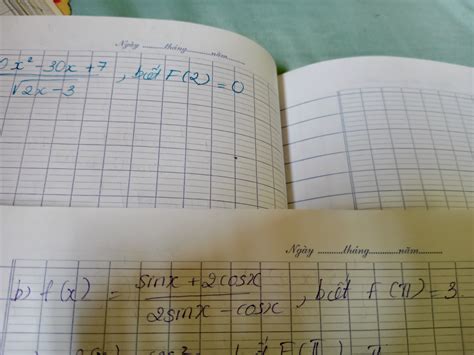 Ngày ............tháng............năm............
0x² - 30x + 7
√2x - 3
, biết F(2) = 0
Ngày ............tháng............năm............
b) f(x) = sinx + 2cosx
2sinx - cosx
, biết F(π) = 3